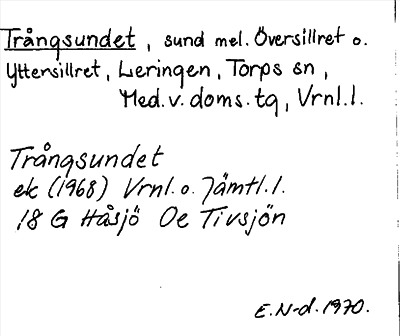 Trångsundet, sund mel. Översillret o.
Yttersillret, Leringen, Torps sn,
Med.v.doms.tg, Vrnl.l.
Trångsundet
ek (1968) Vrnl.o.Jämtl.l.
18 G Håsjö Oe Tivsjön
E.N-d.1970.